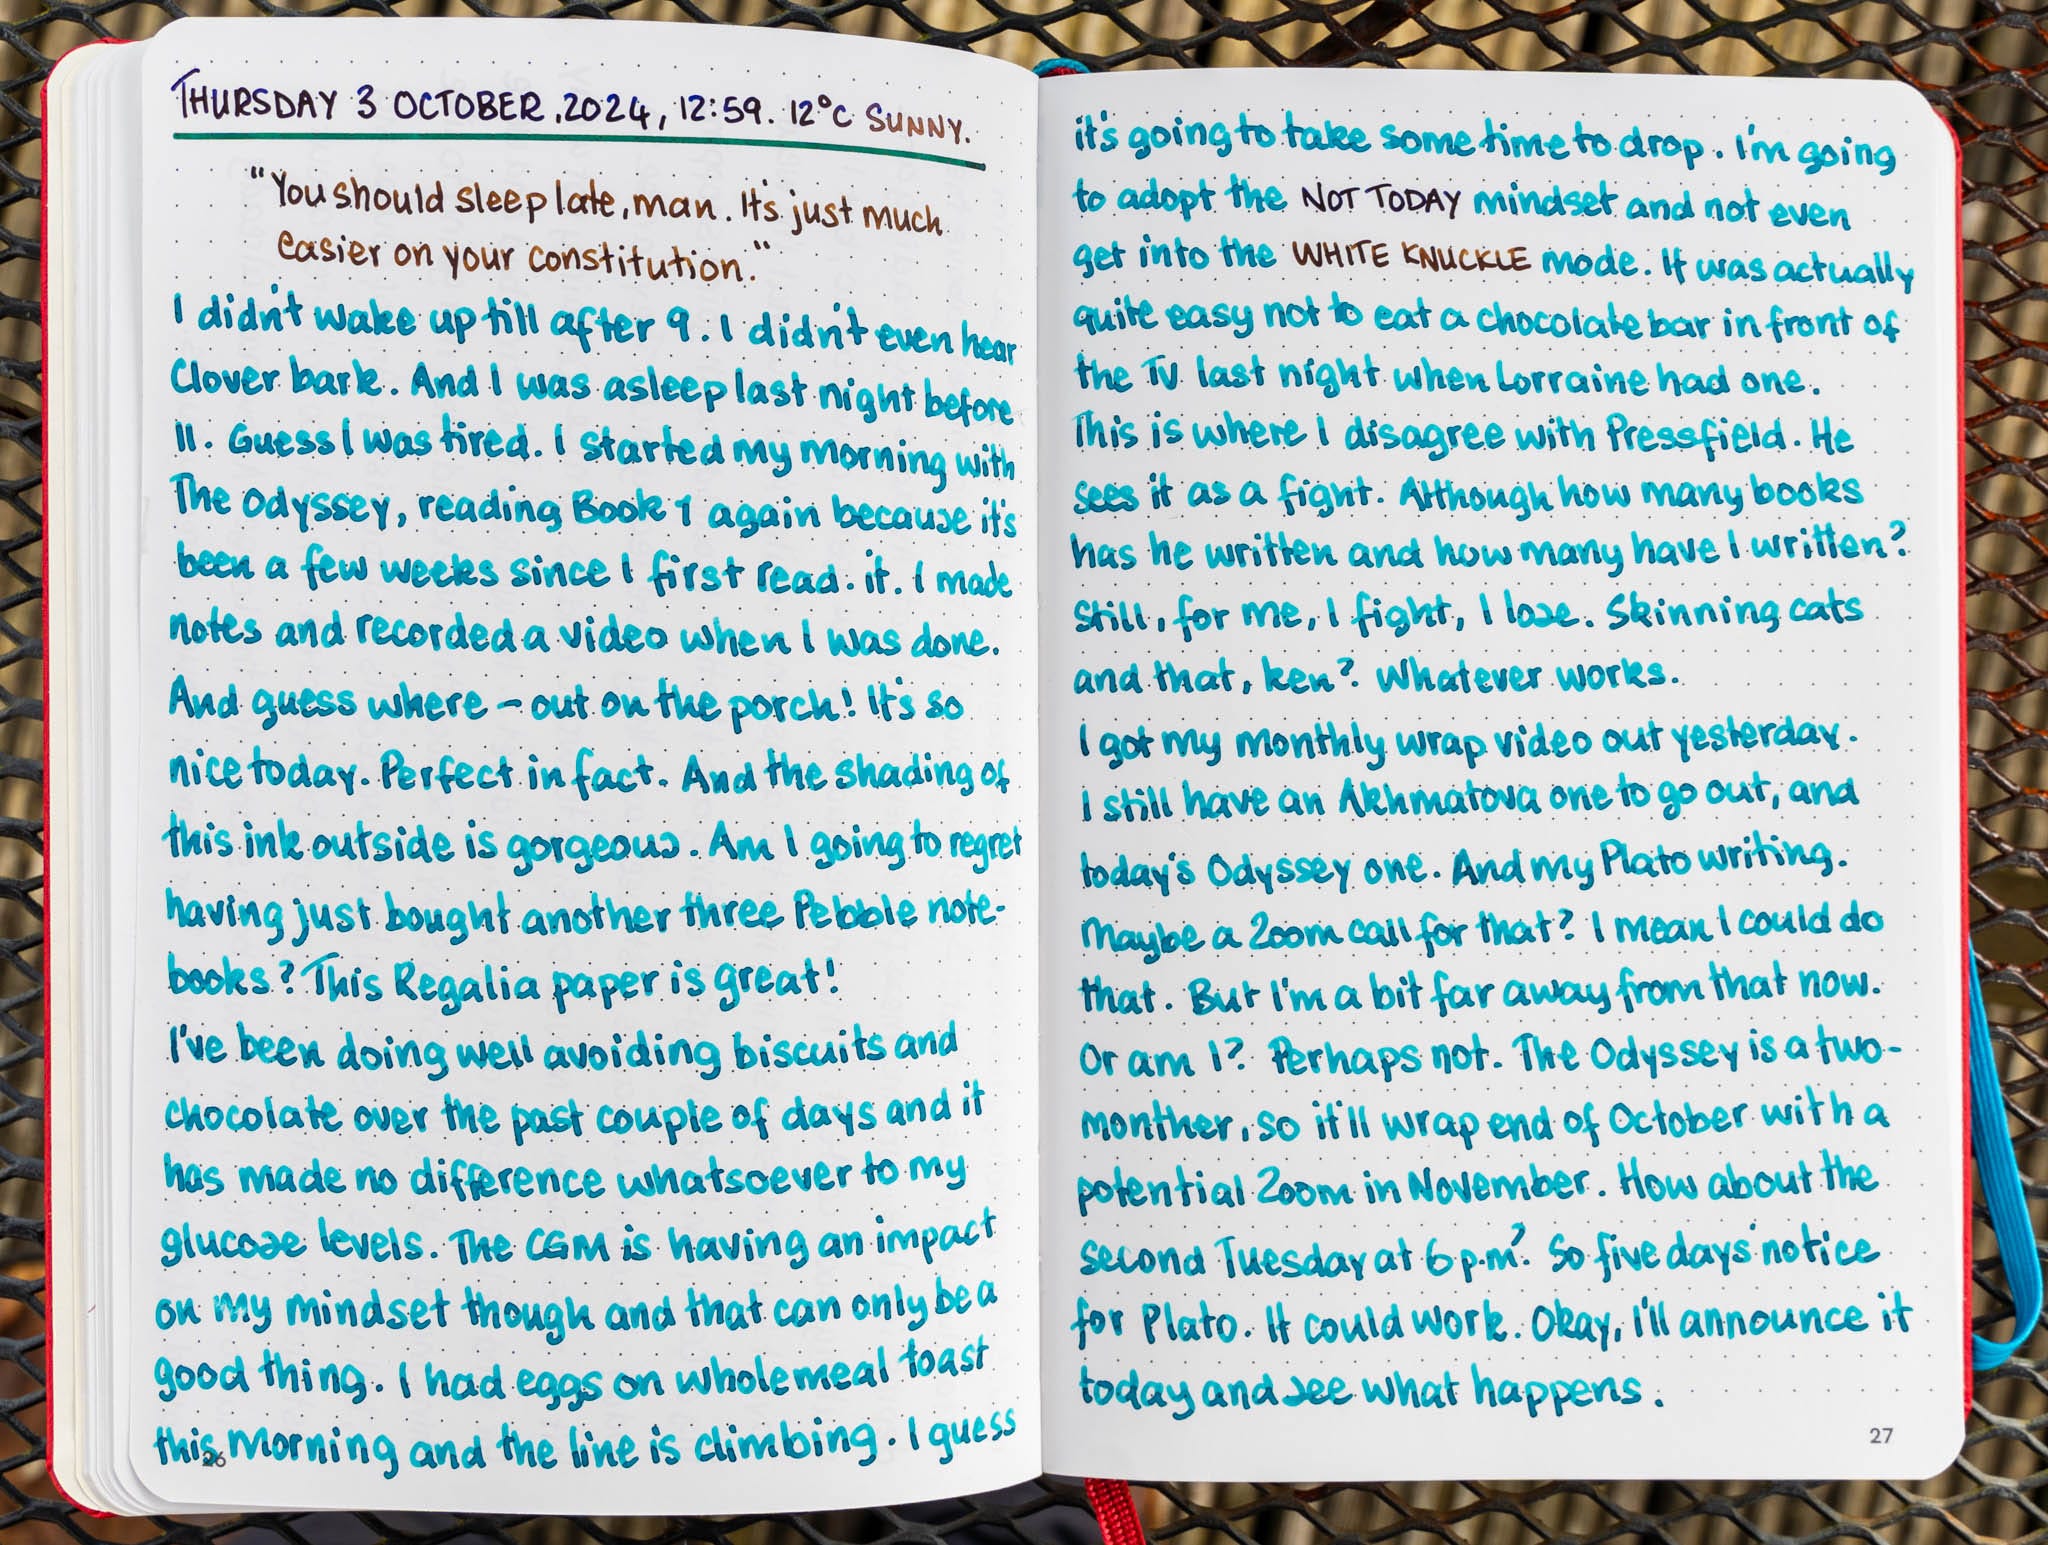 THURSDAY 3 OCTOBER, 2024, 12:59. 12°C SUNNY.
"You should sleep late, man. It's just much
easier on your constitution."
I didn't wake up till after 9. I didn't even hear
Clover bark. And I was asleep last night before
11. Guess I was tired. I started my morning with
The Odyssey, reading Book 1 again because it's
been a few weeks since I first read it. I made
notes and recorded a video when I was done.
And guess where – out on the porch! It's so
nice today. Perfect in fact. And the shading of
this ink outside is gorgeous. Am I going to regret
having just bought another three Pebble note-
books? This Regalia paper is great!
I've been doing well avoiding biscuits and
chocolate over the past couple of days and it
has made no difference whatsoever to my
glucose levels. The CGM is having an impact
on my mindset though and that can only be a
good thing. I had eggs on wholemeal toast
this morning and the line is climbing. I guess
26
it's going to take some time to drop. I'm going
to adopt the NOT TODAY mindset and not even
get into the WHITE KNUCKLE mode. It was actually
quite easy not to eat a chocolate bar in front of
the TV last night when Lorraine had one.
This is where I disagree with Pressfield. He
sees it as a fight. Although how many books
has he written and how many have I written?
Still, for me, I fight, I lose. Skinning cats
and that, ken? Whatever works.
I got my monthly wrap video out yesterday.
I still have an Akhmatova one to go out, and
today's Odyssey one. And my Plato writing.
Maybe a Zoom call for that? I mean I could do
that. But I'm a bit far away from that now.
Or am I? Perhaps not. The Odyssey is a two-
monther, so it'll wrap end of October with a
potential Zoom in November. How about the
second Tuesday at 6 p.m? So five days' notice
for Plato. It could work. Okay, I'll announce it
today and see what happens.
27